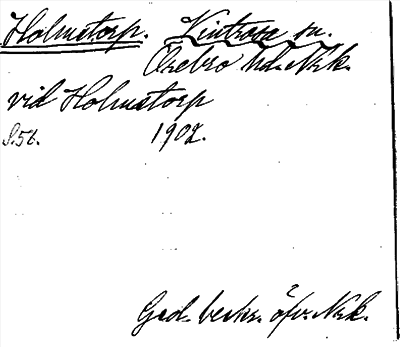 Holmstorp. Kintrosa sn.
Örebro hd. Nrk.
vid Holmstorp
S.58. 1902.
Grd. beskr. öfv. Nrk.